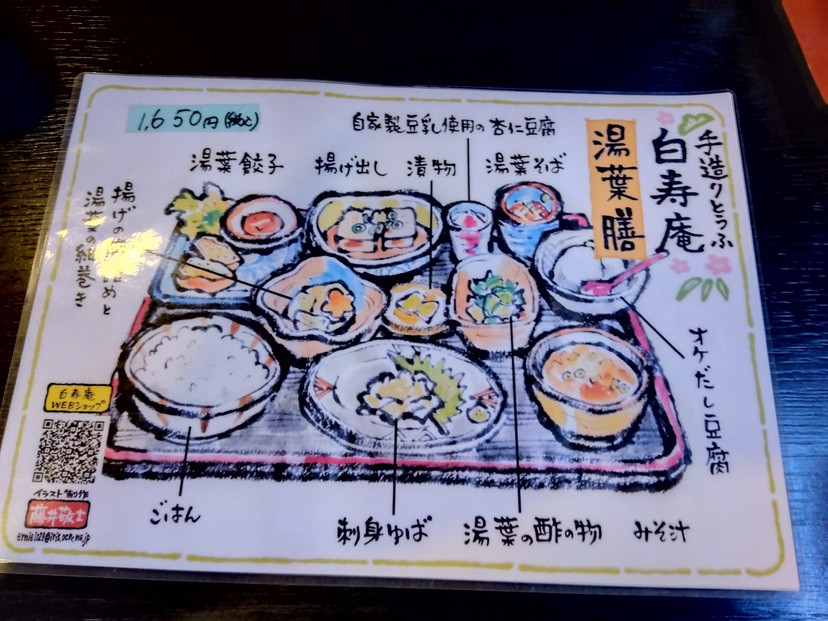 1,650円(税込)
自家製豆乳使用の杏仁豆腐
手造りとうふ
白寿庵
湯葉膳
湯葉餃子
揚げ出し
漬物
湯葉そば
湯葉の絹巻き
オケだし豆腐
白寿庵
WEBショップ
イラスト制作
藤井敬士
ごはん
刺身ゆば
湯葉の酢の物
みそ汁